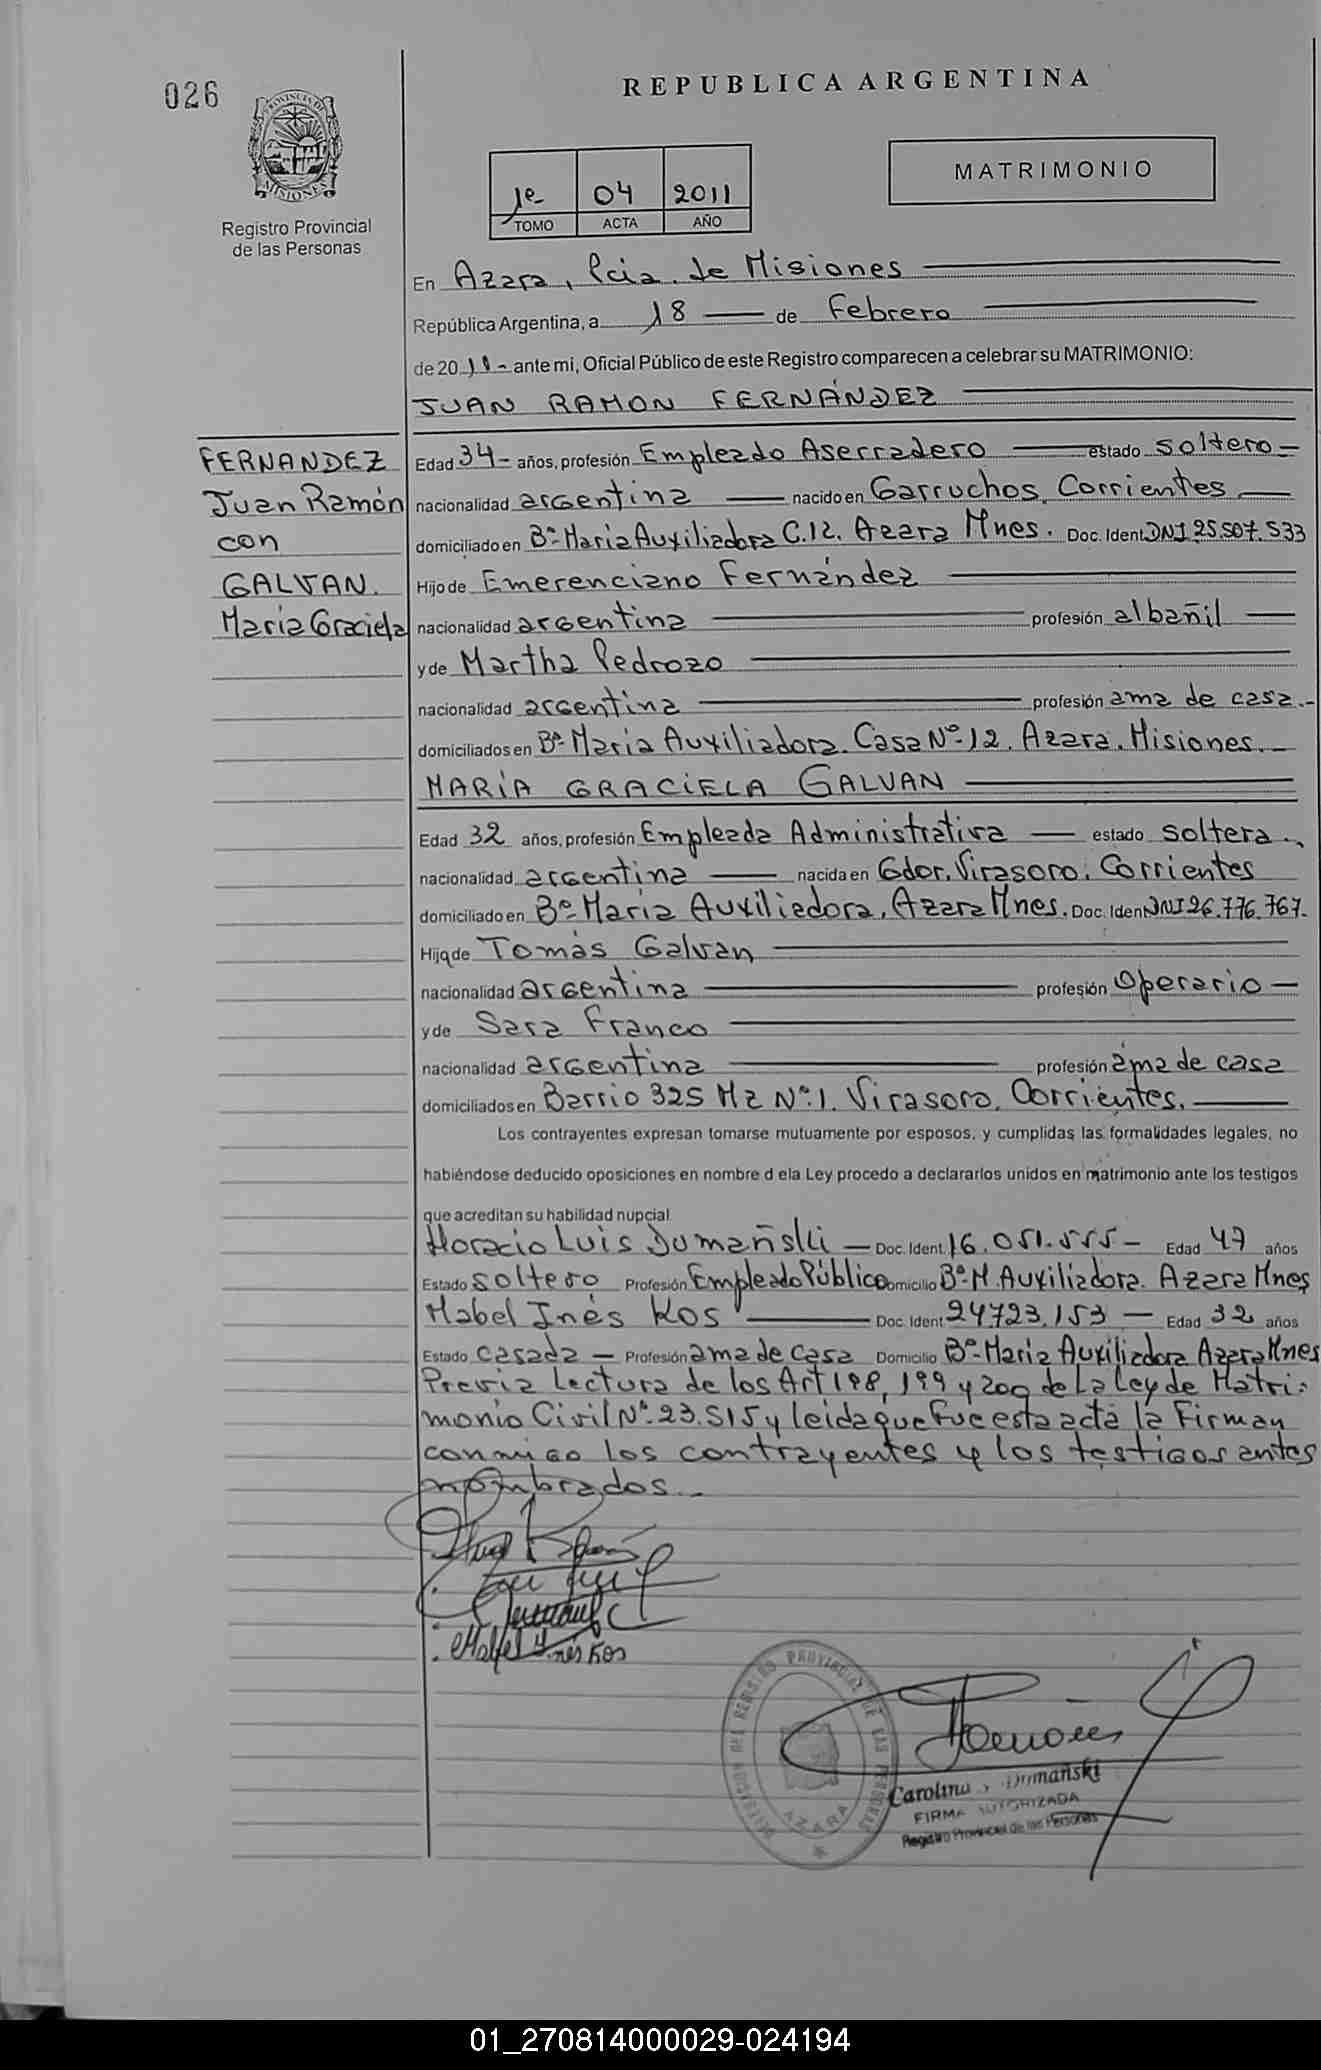 026
REPUBLICA ARGENTINA
PROVINCIA DE MISIONES
Registro Provincial
de las Personas
1º 04 2011
TOMO ACTA AÑO
MATRIMONIO
En Azara, Pcia. de Misiones
República Argentina, a 18 de Febrero
de 2011- ante mi, Oficial Público de este Registro comparecen a celebrar su MATRIMONIO:
JUAN RAMON FERNÁNDEZ
FERNANDEZ
Juan Ramón
con
GALVAN.
María Graciela
Edad 34- años, profesión Empleado Aserradero estado soltero-
nacionalidad argentina nacido en Garruchos, Corrientes
domiciliado en Bº María Auxiliadora C.12. Azara Mnes. Doc. Ident. DNI 25.507.533
Hijo de Emerenciano Fernández
nacionalidad argentina profesión albañil
y de Martha Pedrozo
nacionalidad argentina profesión ama de casa.-
domiciliados en Bº María Auxiliadora. Casa Nº 12. Azara. Misiones.
MARÍA GRACIELA GALVAN
Edad 32 años, profesión Empleada Administrativa estado soltera.
nacionalidad argentina nacida en Gdor. Virasoro. Corrientes
domiciliado en Bº María Auxiliadora. Azara Mnes. Doc. Iden DNI 26.776.767.
Hija de Tomás Galvan
nacionalidad argentina profesión Operario
y de Sara Franco
nacionalidad argentina profesión ama de casa
domiciliados en Barrio 325 Mz Nº 1. Virasoro. Corrientes.
Los contrayentes expresan tomarse mutuamente por esposos, y cumplidas las formalidades legales, no
habiéndose deducido oposiciones en nombre d ela Ley procedo a declararlos unidos en matrimonio ante los testigos
que acreditan su habilidad nupcial
Horacio Luis Dumañski Doc. Ident. 16.051.555- Edad 47 años
Estado soltero Profesión Empleado Público Domicilio Bº M. Auxiliadora. Azara Mnes
Mabel Inés Kos Doc. Ident. 24723.153 Edad 32 años
Estado casada Profesión ama de casa Domicilio Bº María Auxiliadora Azara Mnes
Previa Lectura de los Art 198, 199 y 200 de La Ley de Matri-
monio Civil Nº 23.515 y leida que fue esta acta la Firman
conmigo los contrayentes y los testigos antes
nombrados.
Mabel Inés Kos
DELEGACION DEL REGISTRO PROVINCIAL DE LAS PERSONAS
AZARA
Carolina Dumañski
FIRMA AUTORIZADA
Registro Provincial de las Personas
01_270814000029-024194